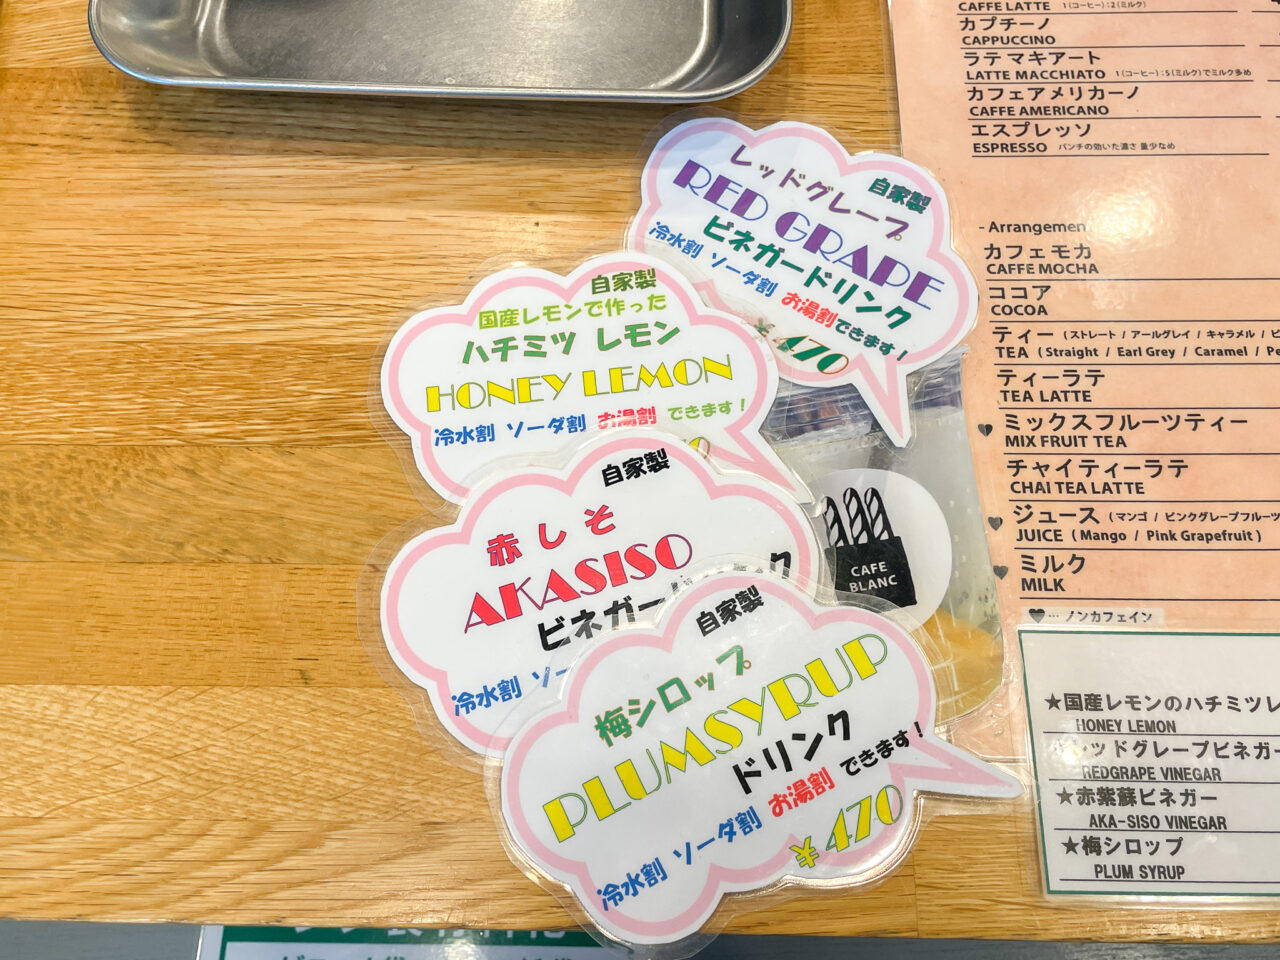 レッドグレープ
自家製
RED GRAPE
ビネガードリンク
冷水割 ソーダ割 お湯割できます!
¥470
自家製
国産レモンで作った
ハチミツ レモン
HONEY LEMON
冷水割 ソーダ割 お湯割 できます!
自家製
赤しそ
AKASISO
ビネガー
ク
冷水割 ソー
自家製
梅シロップ
PLUMSYRUP
ドリンク
冷水割 ソーダ割 お湯割 できます!
¥470
CAFE
BLANC
CAFFE LATTE 1(コーヒー):2(ミルク)
カプチーノ
CAPPUCCINO
ラテマキアート
LATTE MACCHIATO 1(コーヒー):5(ミルク)でミルク多め
カフェアメリカーノ
CAFFE AMERICANO
エスプレッソ
ESPRESSO パンチの効いた濃さ 量少なめ
- Arrangemen
カフェモカ
CAFFE MOCHA
ココア
COCOA
ティー (ストレート / アールグレイ / キャラメル / ピ
TEA ( Straight / Earl Grey / Caramel / Pe
ティーラテ
TEA LATTE
ミックスフルーツティー
MIX FRUIT TEA
チャイティーラテ
CHAI TEA LATTE
ジュース (マンゴ / ピンクグレープフルーツ
JUICE ( Mango / Pink Grapefruit )
ミルク
MILK
♥… ノンカフェイン
★国産レモンのハチミツレ
HONEY LEMON
レッドグレープビネガー
REDGRAPE VINEGAR
★赤紫蘇ビネガー
AKA-SISO VINEGAR
★梅シロップ
PLUM SYRUP